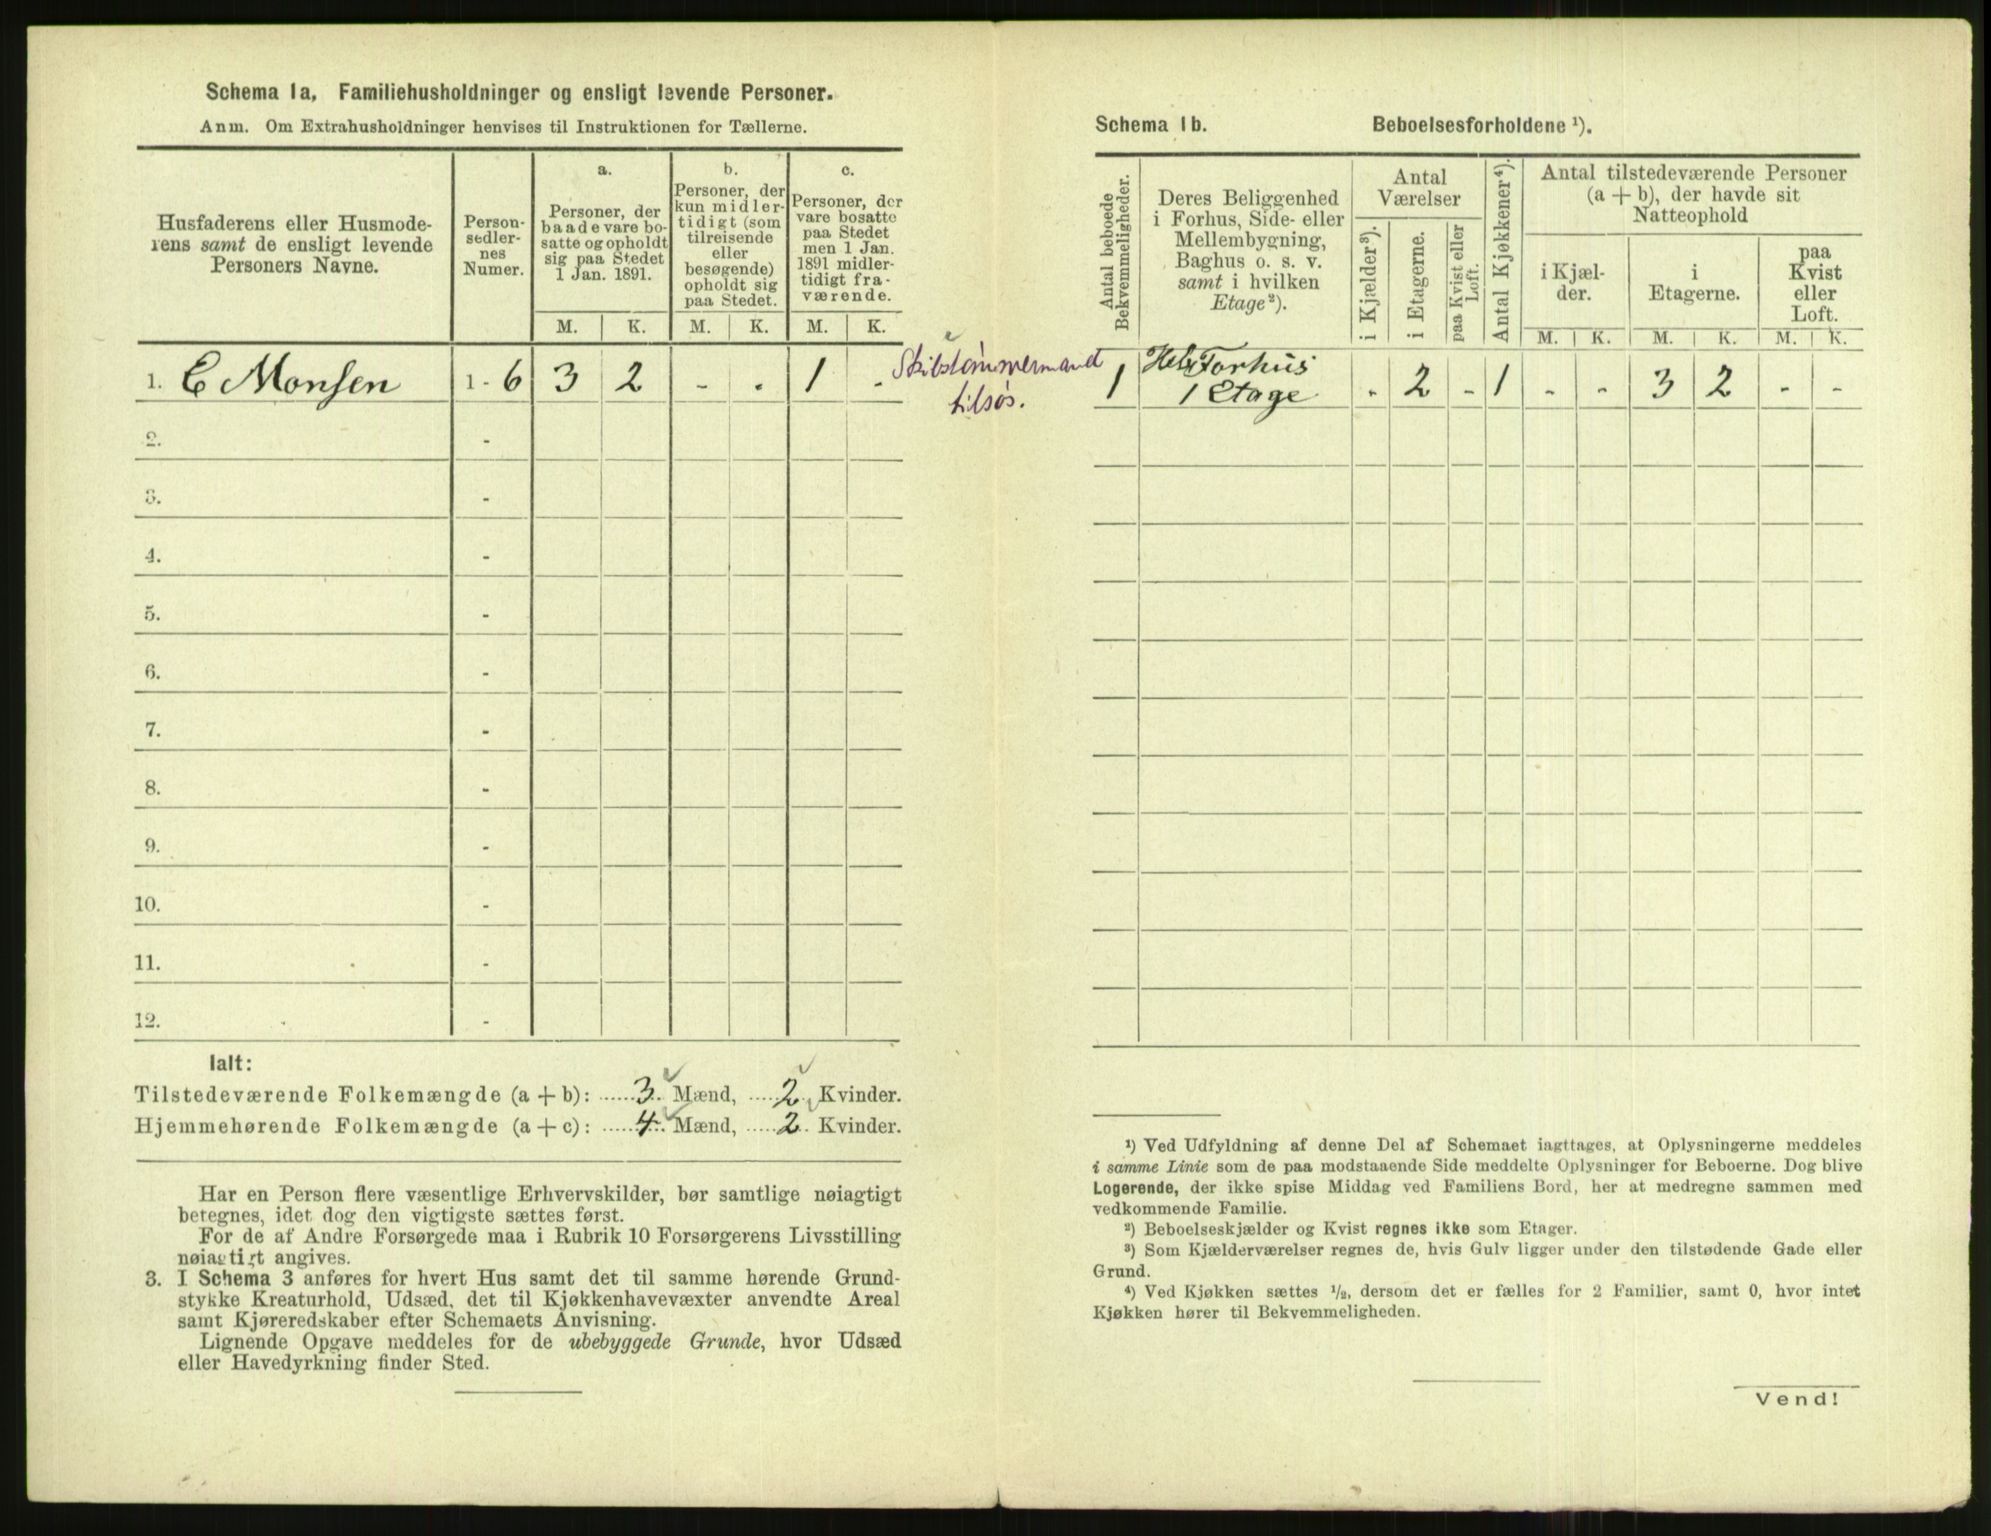 Schema 1a, Familiehusholdninger og ensligt levende Personer.
Anm. Om Extrahusholdninger henvises til Instruktionen for Tællerne.
Husfaderens eller Husmode-
rens samt de ensligt levende
Personers Navne.
Person-
sedler-
nes
Numer.
a.
Personer, der
baade vare bo-
satte og opholdt
sig paa Stedet
1 Jan. 1891.
b.
Personer, der
kun midler-
tidigt (som
tilreisende
eller
besøgende)
opholdt sig
paa Stedet.
c.
Personer, der
vare bosatte
paa Stedet
men 1 Jan.
1891 midler-
tidigt fra-
værende.
M. K. M. K. M. K.
1. C Monsen 1 - 6 3 2 - - 1 -
Skibstømmermand
tilsøs.
2. -
3. -
4. -
5. -
6. -
7. -
8. -
9. -
10. -
11. -
12. -
Ialt:
Tilstedeværende Folkemængde (a + b): 3 Mænd, 2 Kvinder.
Hjemmehørende Folkemængde (a + c): 4 Mænd, 2 Kvinder.
Har en Person flere væsentlige Erhvervskilder, bør samtlige nøiagtigt
betegnes, idet dog den vigtigste sættes først.
For de af Andre Forsørgede maa i Rubrik 10 Forsørgerens Livsstilling
nøiagtigt angives.
3. I Schema 3 anføres for hvert Hus samt det til samme hørende Grund-
stykke Kreaturhold, Udsæd, det til Kjøkkenhavevæxter anvendte Areal
samt Kjøreredskaber efter Schemaets Anvisning.
Lignende Opgave meddeles for de ubebyggede Grunde, hvor Udsæd
eller Havedyrkning finder Sted.
Schema 1b. Beboelsesforholdene ¹).
Antal beboede
Bekvemmeligheder.
Deres Beliggenhed
i Forhus, Side- eller
Mellembygning,
Baghus o. s. v.
samt i hvilken
Etage²).
Antal
Værelser
i Kjælder³).
i Etagerne.
paa Kvist eller
Loft.
Antal Kjøkkener⁴).
Antal tilstedeværende Personer
(a + b), der havde sit
Natteophold
i Kjæl-
der.
i
Etagerne.
paa
Kvist
eller
Loft.
M. K. M. K. M. K.
1 Forhus
1 Etage - 2 - 1 - - 3 2 - -
¹) Ved Udfyldning af denne Del af Schemaet iagttages, at Oplysningerne meddeles
i samme Linie som de paa modstaaende Side meddelte Oplysninger for Beboerne. Dog blive
Logerende, der ikke spise Middag ved Familiens Bord, her at medregne sammen med
vedkommende Familie.
²) Beboelseskjælder og Kvist regnes ikke som Etager.
³) Som Kjælderværelser regnes de, hvis Gulv ligger under den tilstødende Gade eller
Grund.
⁴) Ved Kjøkken sættes ½, dersom det er fælles for 2 Familier, samt 0, hvor intet
Kjøkken hører til Bekvemmeligheden.
Vend!